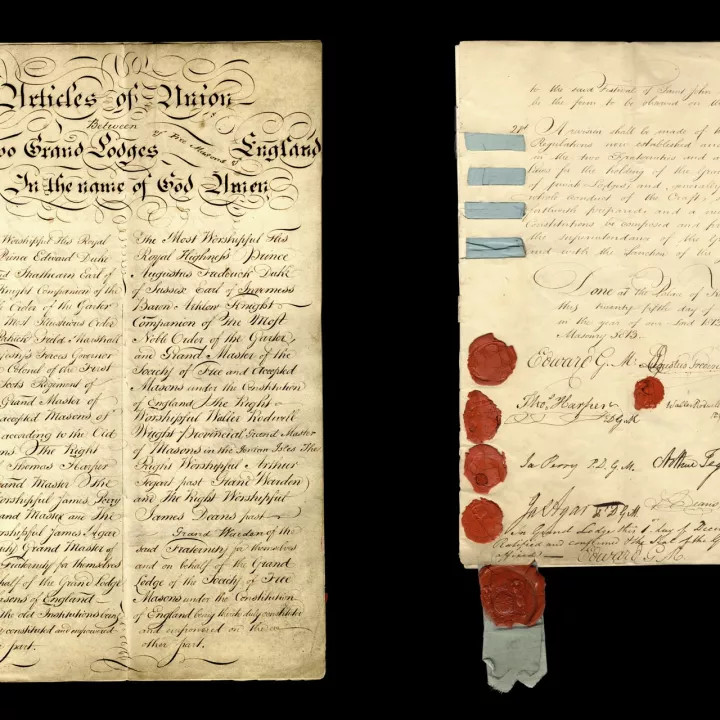 Articles of Union
Between
Two Grand Lodges of Free Masons of England
In the name of God Amen
Worshipful His Royal
Prince Edward Duke
and Strathearn Earl of
Knight Companion of the
Order of the Garter
Most Illustrious Order
Patrick Field Marshall
Majesty's Forces Governor
Colonel of the First
Scots Regiment of
Grand Master of
accepted Masons of
according to the Old
The Right
Thomas Harper
Grand Master The
Worshipful James Perry
Grand Master and The
Worshipful James Agar
Deputy Grand Master of
Fraternity for themselves
behalf of the Grand Lodge
Masons of England
the old Institutions being
constituted and empowered
part.
The Most Worshipful His
Royal Highness Prince
Augustus Frederick Duke
of Sussex Earl of Inverness
Baron Arklow Knight
Companion of the Most
Noble Order of the Garter
and Grand Master of the
Society of Free and Accepted
Masons under the Constitution
of England The Right
Worshipful Waller Rodwell
Wright Provincial Grand Master
of Masons in the Ionian Isles The
Right Worshipful Arthur
Tegart past Grand Warden
and The Right Worshipful
James Deans past
Grand Warden of the
said Fraternity for themselves
and on behalf of the Grand
Lodge of the Society of Free
Masons under the Constitution
of England being thereto duly constituted
and empowered on the
other part.
to the said Festival of Saint John
be the form to be observed on
21st A revision shall be made of
Regulations now established and
in the two Fraternities and
laws for the holding of the
of private Lodges and generally
whole conduct of the Craft
forthwith prepared and a
Constitutions be composed and
the superintendance of the
and with the Sanction of the
Done at the Palace of
this twenty fifth day of
in the year of our Lord 1813
Masonry 5813
Edward G. M. Augustus Frederick
Thos. Harper D.G.M. Waller Rodwell
Ja Perry P.D.G.M. Arthur Teg
Jas Agar P.D.G.M. Deans
In Grand Lodge this 1st day of Dec
Ratified and confirmed & the Seal of the
affixed Edward G.M.